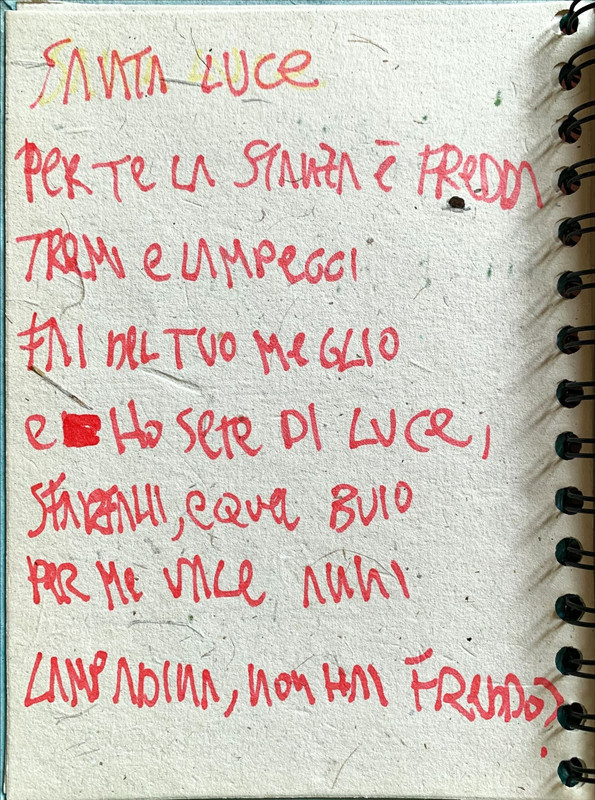 SANTA LUCE
PER TE LA STANZA È FREDDA
TREMI E LAMPEGGI
FAI DEL TUO MEGLIO
E HO SETE DI LUCE,
E QUEL BUIO
PER ME VALE ANNI
LAMPADINA, NON HAI FREDDO?